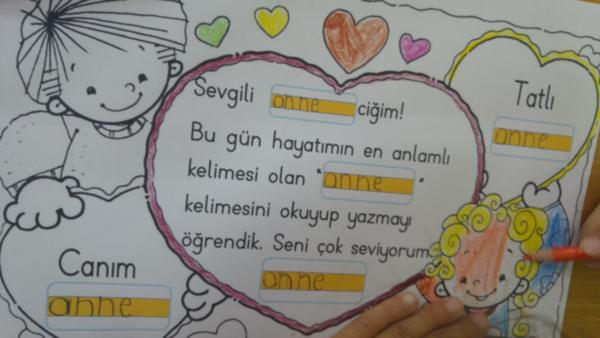 Sevgili anne ciğim!
Bu gün hayatımın en anlamlı
kelimesi olan "anne"
kelimesini okuyup yazmayı
öğrendik. Seni çok seviyorum
anne
Tatlı
anne
Canım
anne